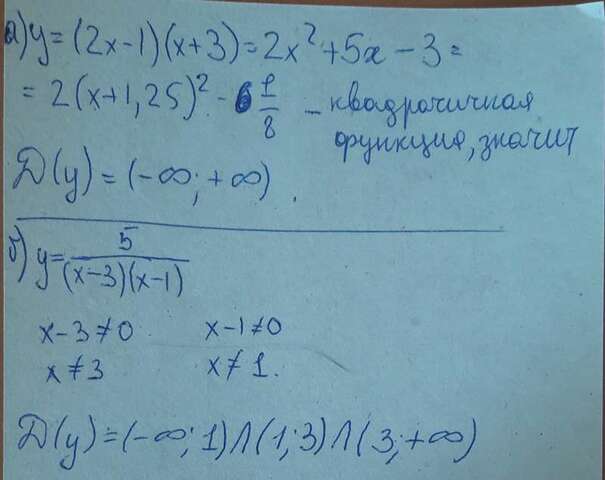 а) y = (2x-1)(x+3) = 2x² + 5x - 3 =
= 2(x+1,25)² - 6 1/8 - квадратичная
функция, значит
D(y) = (-∞; +∞).
б) y = 5/((x-3)(x-1))
x-3≠0 x-1≠0
x≠3 x≠1.
D(y) = (-∞; 1) Λ (1; 3) Λ (3; +∞)